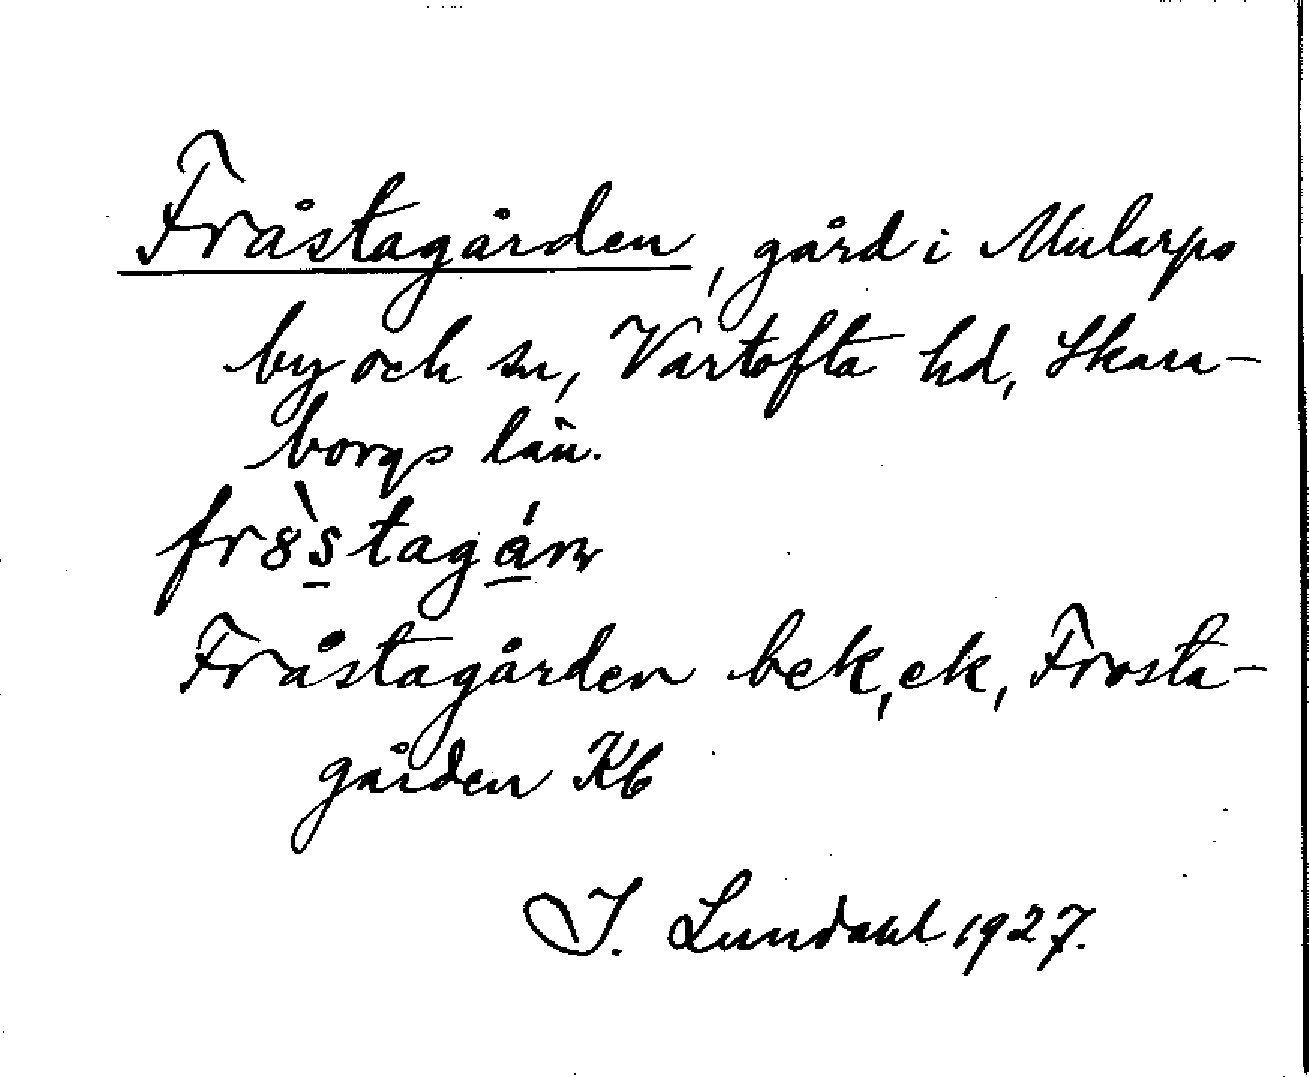 Fråstagården, gård i Mularps
by och sn, Vartofta hd, Skara-
borgs län.
Fråstagården bek, ek, Frosta-
gården Kb
I. Lundahl 1927.